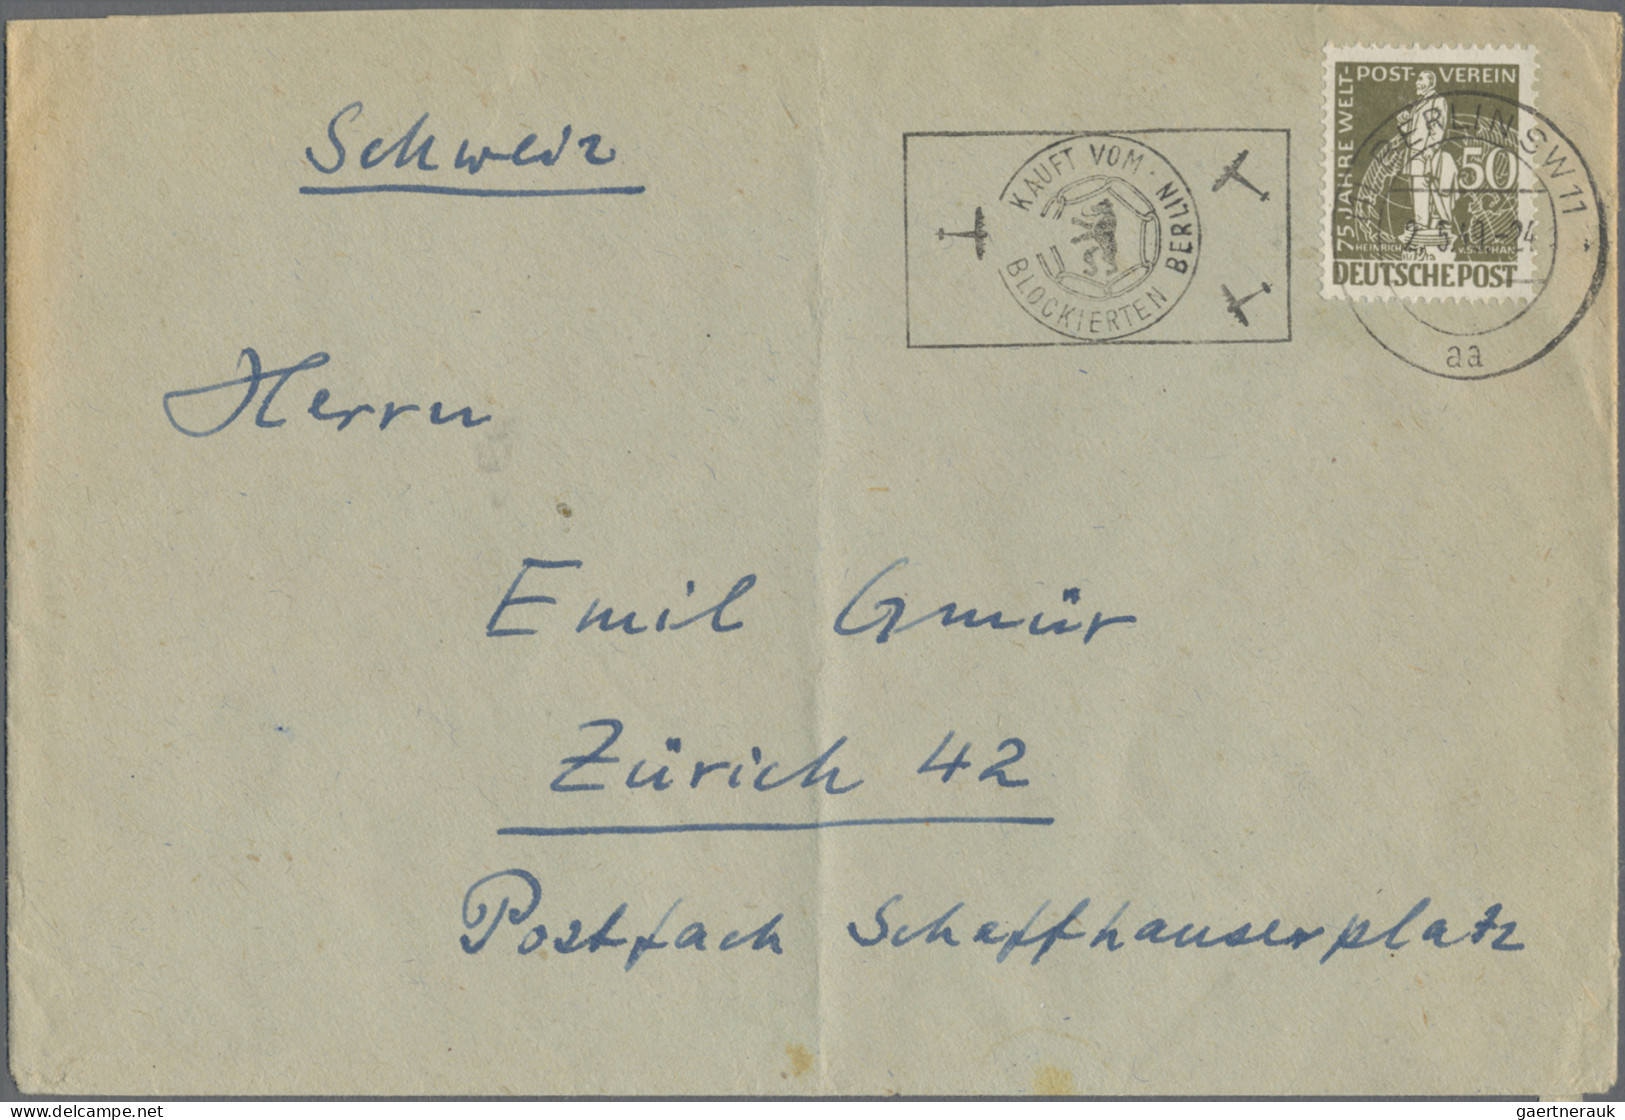 Schweiz
KAUFT VOM
BLOCKIERTEN BERLIN
75 JAHRE WELT-POST-VEREIN
50
HEINRICH V. STEPHAN
DEUTSCHE POST
BERLIN SW 11
aa
Herrn
Emil Gmür
Zürich 42
Postfach Schaffhauserplatz
delcampe.net
gaertnerauk